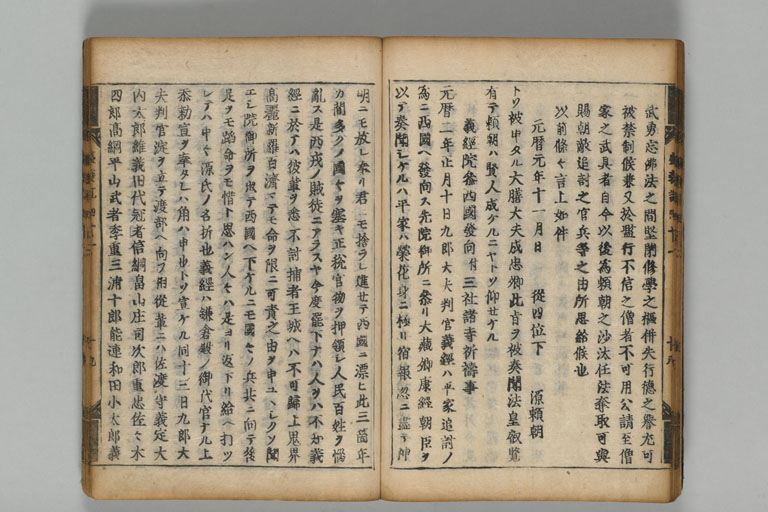 武勇忘佛法之間堅閉修學之樞併失行德之譽尤可
被禁制候兼又於濫行不信之僧者不可用公請至僧
家之武具者自今以後為頼朝之沙汰任法奪取可與
賜朝敵追討之官兵等之由所思給候也
以前條々言上如件
元暦元年十一月日 從四位下 源頼朝
トソ被申タル大膳大夫成忠卿此旨ヲ被奏聞法皇叡覧
有テ頼朝ハ賢人成ケルニヤトソ仰セケル
義經院參西國發向付三社諸寺祈禱事
元暦二年正月十日九郎大夫判官義經ハ平家追討ノ
為ニ西國ヘ發向ス先院御所ニ参リ大藏卿康經朝臣ヲ
以テ奏聞シケルハ平家ハ榮花身ニ極リ宿報忽ニ盡テ神
明ニモ放レ奉リ君ニモ捨ラレ進セテ西國ニ漂ヒ此三箇年
カ間多クノ國々ヲ塞キ正税官物ヲ押領シ人民百姓ヲ悩
亂ス是西戎ノ賊徒ニアラスヤ今度罷下ナハ人ヲハ不知義
經ニ於テハ彼輩ヲ悉不討捕者王城ヘハ不可歸上鬼界
高麗新羅百濟マテモ命ヲ限ニ可責之由ヲ申ユヽシクソ聞
エシ院御所ヲ出テ西國ヘ下ケルニモ國々ノ兵共ニ向テ後
足ヲモ蹈命ヲモ惜ト思ハン人々ハ是ヨリ返下リ給ヘ打ツ
レテハ中々源氏ノ名折也義經ハ鎌倉殿ノ御代官ナル上
忝勅宣ヲ奉タレハ角ハ申也トソ宣ケル同十三日九郎大
夫判官淀ヲ立テ渡部ヘ向フ相從輩ニハ佐渡守義定大
内太郎維義田代冠者信綱畠山庄司次郎重忠佐々木
四郎高綱平山武者李重三浦十郎能連和田小太郎義